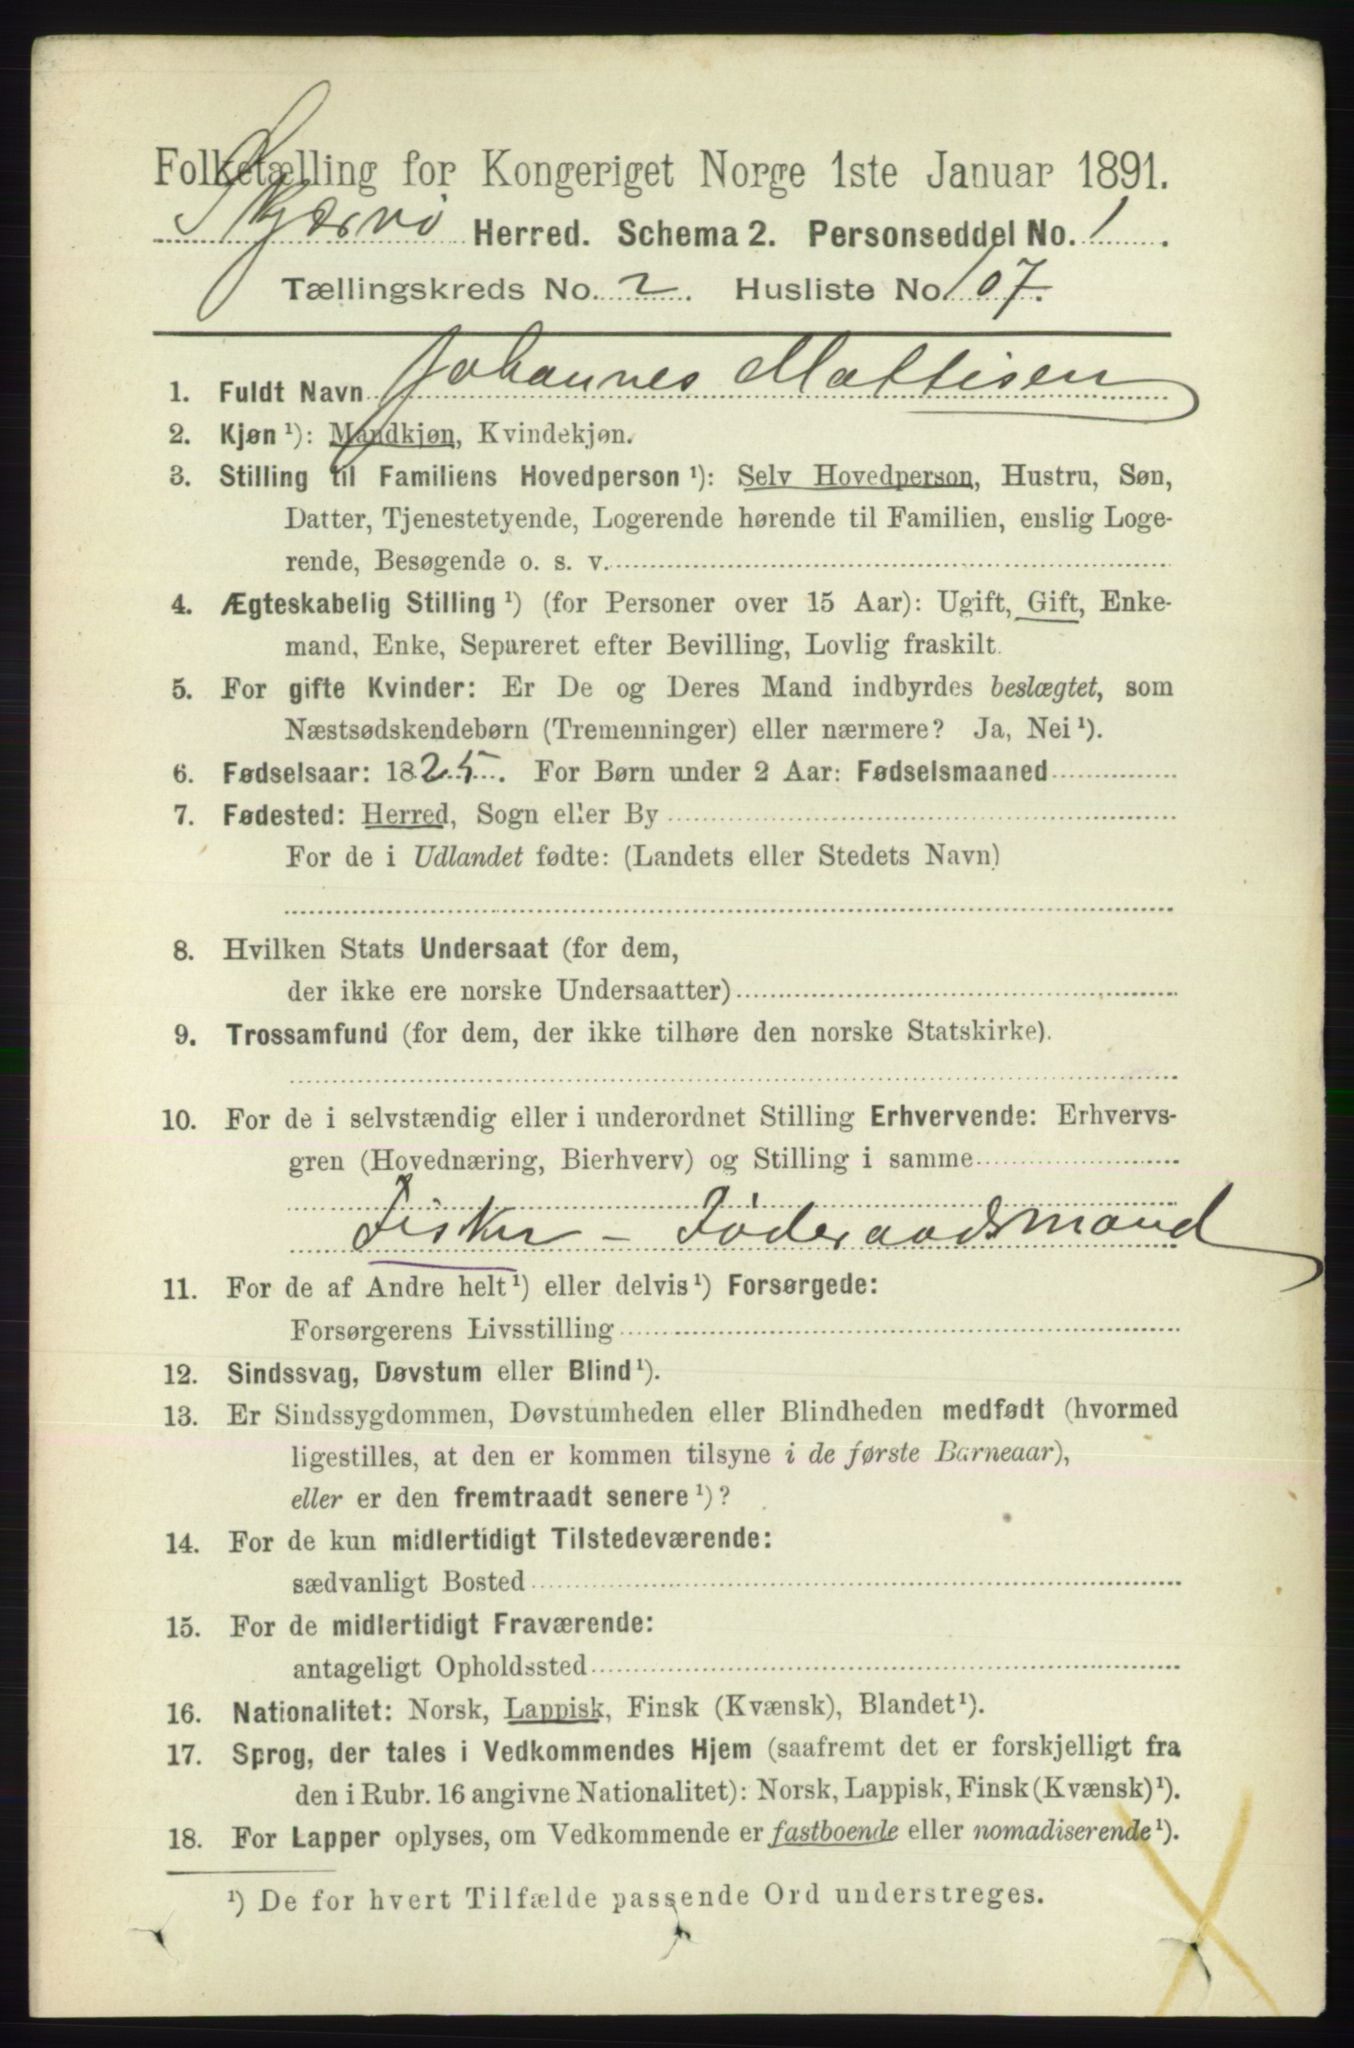 Folketælling for Kongeriget Norge 1ste Januar 1891.
Skjærvø Herred. Schema 2. Personseddel No. 1.
Tællingskreds No. 2. Husliste No. 107.
1. Fuldt Navn Johannes Mattisen
2. Kjøn ¹): Mandkjøn, Kvindekjøn.
3. Stilling til Familiens Hovedperson ¹): Selv Hovedperson, Hustru, Søn,
Datter, Tjenestetyende, Logerende hørende til Familien, enslig Loge-
rende, Besøgende o. s. v.
4. Ægteskabelig Stilling ¹) (for Personer over 15 Aar): Ugift, Gift, Enke-
mand, Enke, Separeret efter Bevilling, Lovlig fraskilt.
5. For gifte Kvinder: Er De og Deres Mand indbyrdes beslægtet, som
Næstsødskendebørn (Tremenninger) eller nærmere? Ja, Nei ¹).
6. Fødselsaar: 1825. For Børn under 2 Aar: Fødselsmaaned
7. Fødested: Herred, Sogn eller By
For de i Udlandet fødte: (Landets eller Stedets Navn)
8. Hvilken Stats Undersaat (for dem,
der ikke ere norske Undersaatter)
9. Trossamfund (for dem, der ikke tilhøre den norske Statskirke).
10. For de i selvstændig eller i underordnet Stilling Erhvervende: Erhvervs-
gren (Hovednæring, Bierhverv) og Stilling i samme
Fisker – Föderaadsmand
11. For de af Andre helt ¹) eller delvis ¹) Forsørgede:
Forsørgerens Livsstilling
12. Sindssvag, Døvstum eller Blind ¹).
13. Er Sindssygdommen, Døvstumheden eller Blindheden medfødt (hvormed
ligestilles, at den er kommen tilsyne i de første Barneaar),
eller er den fremtraadt senere ¹)?
14. For de kun midlertidigt Tilstedeværende:
sædvanligt Bosted
15. For de midlertidigt Fraværende:
antageligt Opholdssted
16. Nationalitet: Norsk, Lappisk, Finsk (Kvænsk), Blandet ¹).
17. Sprog, der tales i Vedkommendes Hjem (saafremt det er forskjelligt fra
den i Rubr. 16 angivne Nationalitet): Norsk, Lappisk, Finsk (Kvænsk) ¹).
18. For Lapper oplyses, om Vedkommende er fastboende eller nomadiserende ¹).
¹) De for hvert Tilfælde passende Ord understreges.